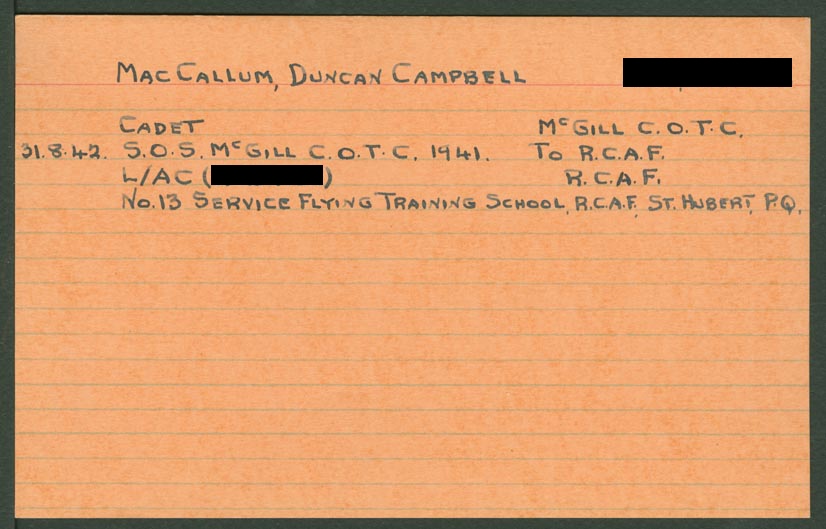 MACCALLUM, DUNCAN CAMPBELL
CADET McGILL C.O.T.C.
31.8.42. S.O.S. McGILL C.O.T.C. 1941. TO R.C.A.F.
L/AC ( ) R.C.A.F.
NO.13 SERVICE FLYING TRAINING SCHOOL, R.C.A.F., ST. HUBERT, P.Q.